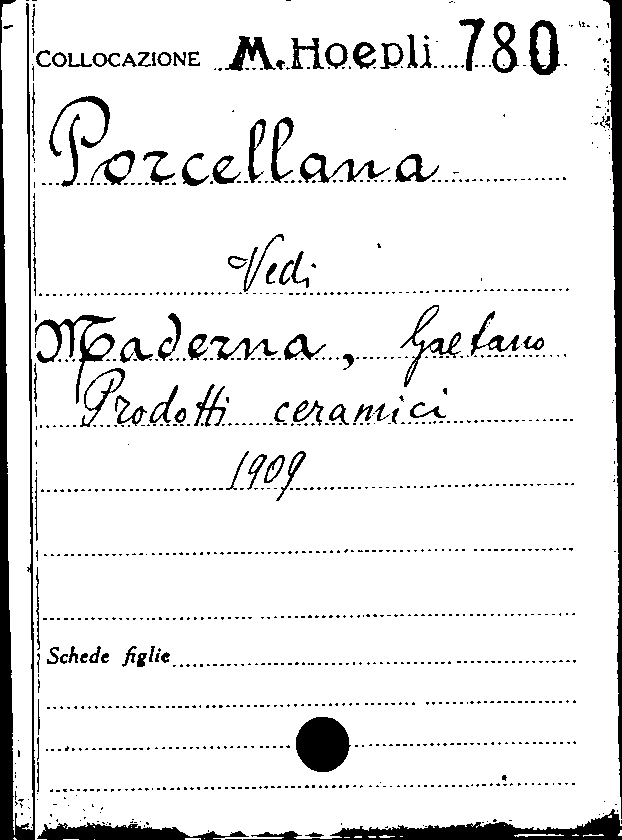 COLLOCAZIONE M. Hoepli 780
Porcellana
Vedi
Maderna, Gaetano
Prodotti ceramici
1909
Schede figlie